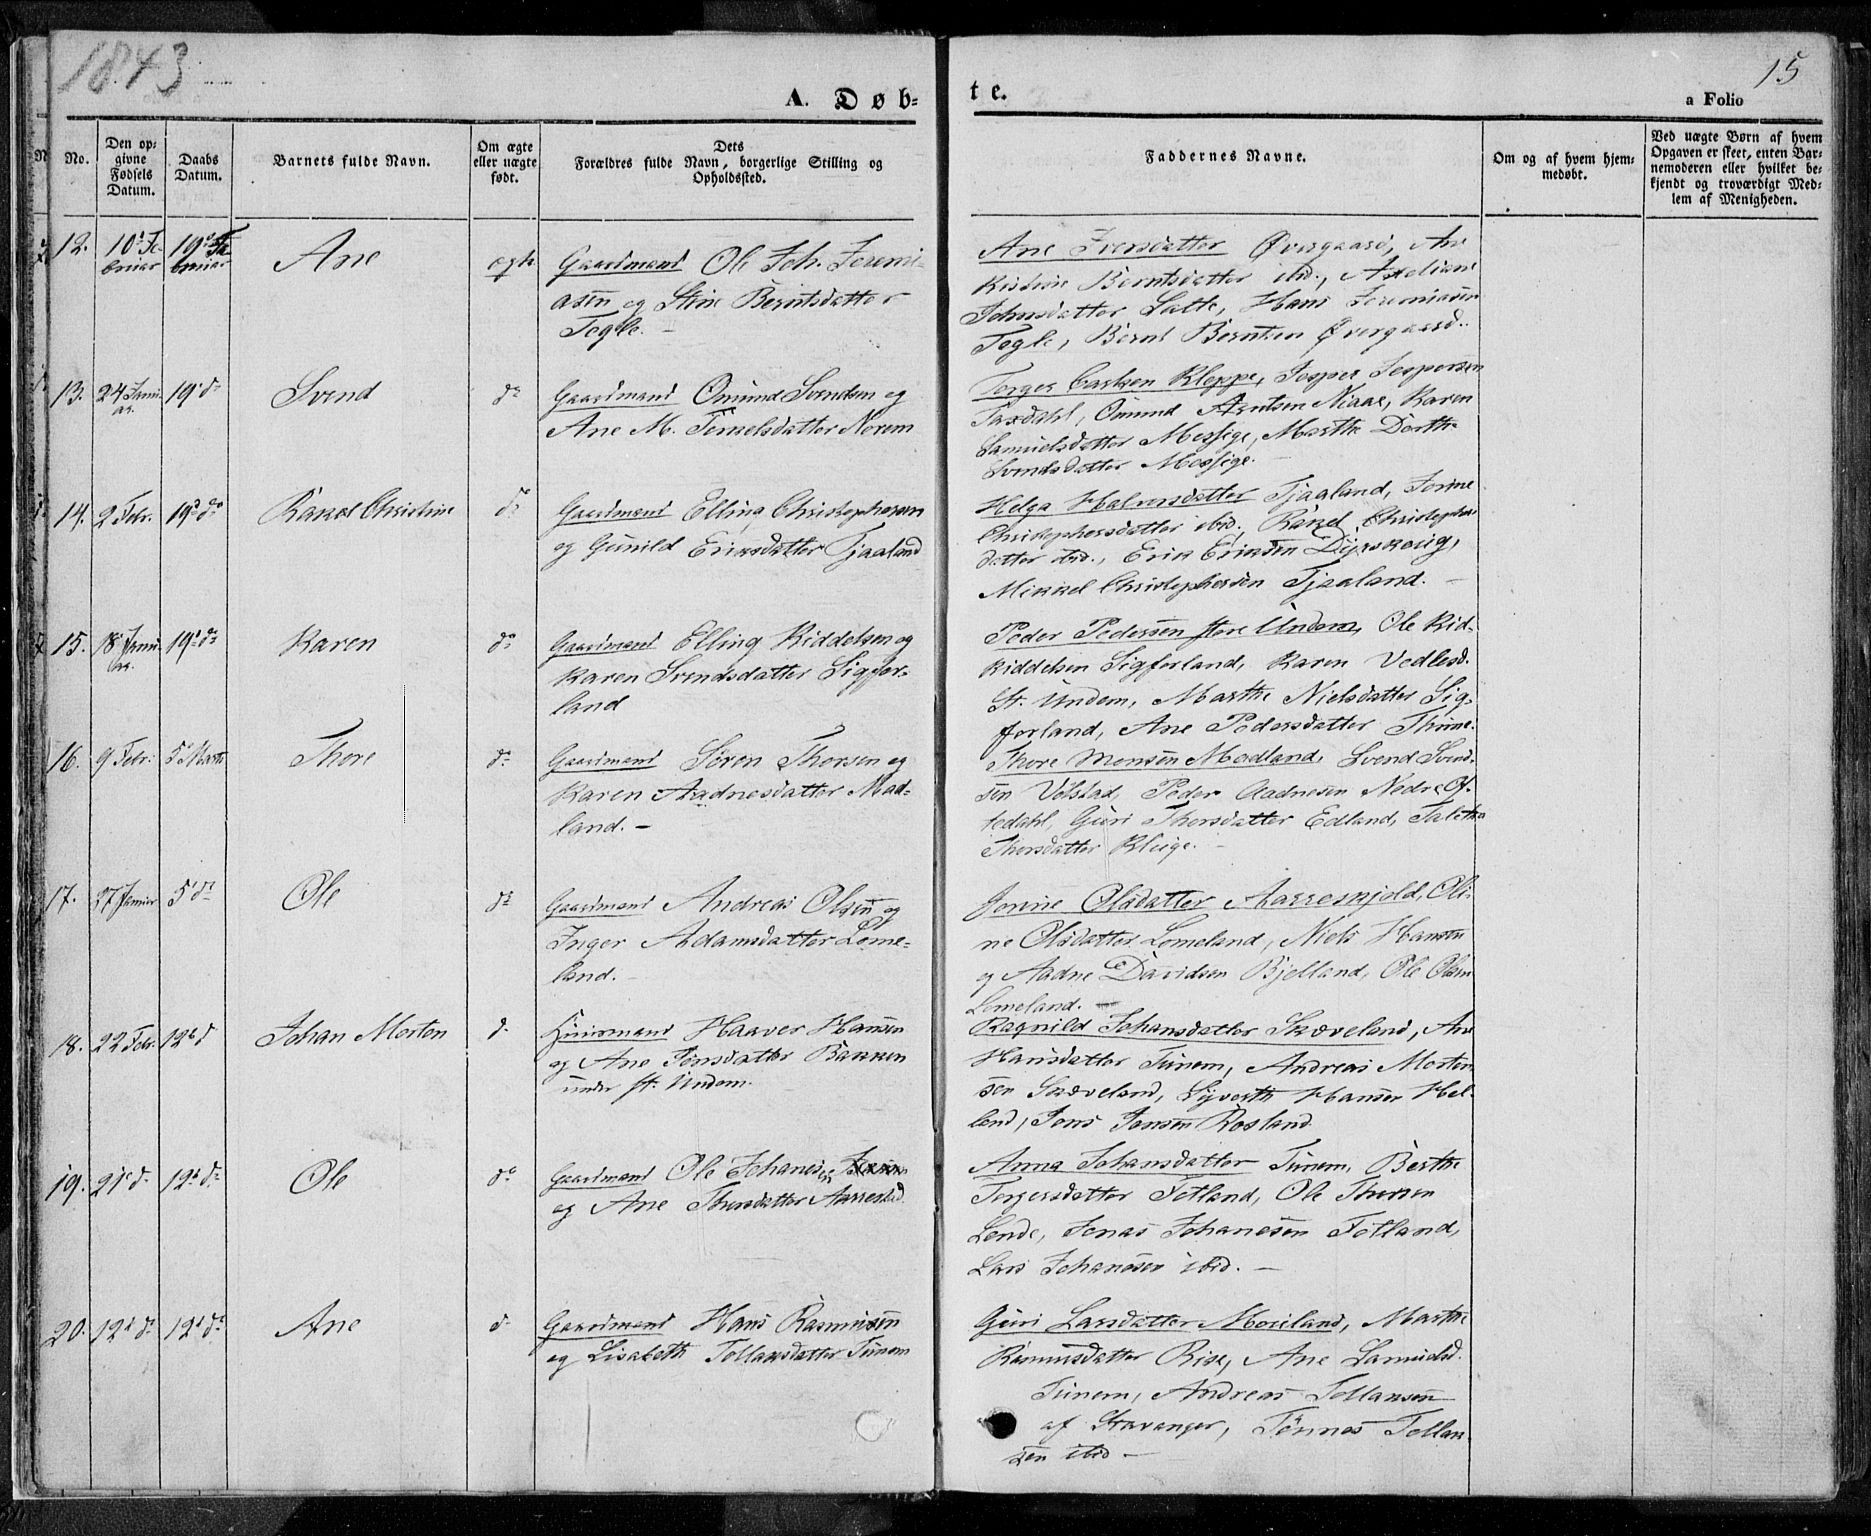 1843
15
A. Døb=
te.
a Folio
No.
Den op=
givne
Fødsels
Datum.
Daabs
Datum.
Barnets fulde Navn.
Om ægte
eller uægte
født.
Dets
Forældres fulde Navn, borgerlige Stilling og
Opholdssted.
Faddernes Navne.
Om og af hvem hjem=
medøbt.
Ved uægte Børn af hvem
Opgaven er skeet, enten Bar=
nemoderen eller hvilket be=
kjendt og troværdigt Med=
lem af Menigheden.
12.
10d Fe-
bruar
19d Fe-
bruar
Ane
egte
Gaardmand Ole Joh. Jeremi-
asen og Stine Berntsdatter
Tegle. –
Ane Iversdatter Øvergaard, An
Kistine Berntsdatter ibid.,
Johnsdatter Satte, Hans Jeremiasen
Tegle, Bernt Berntsen Øvergaard.
13.
24 Janu
ar.
19d do
Svend
do
Gaardmand Omund Svendsen og
Ane M. Temelsdatter Nærem
Torger Carlsen Kleppe, Jesper Jespersen
Taxdahl, Omund Arntsen Niaae, Karen
Samuelsdatter Mossige, Marthe Dorthe
Svendsdatter Mossige. –
14.
2 Febr.
19d do
Rakel Christine
do
Gaardmand Elling Christophersen
og Gunild Eriksdatter Tjaaland
Helga Halvorsdatter Tjaaland, Jorine
Christophersdatter ibid. Rakel Christophers
datter ibid., Erik Eriksen Dyrskoug,
Mikkel Christophersen Tjaaland. –
15.
18d Janu
ar.
19d do
Karen
do
Gaardmand Elling Kiddelsen og
Karen Svendsdatter Sigfor-
land
Peder Pedersen store Undem, Ole Kid-
Kiddelsen Sigforland, Karen Vedlesd.
St. Undem, Marthe Nielsdatter Sig-
forland, Ane Pedersdatter Thime.
16.
9 Febr.
5d Marts
Thore
do
Gaardmand Sören Thorsen og
Karen Aadnesdatter Mad-
land. –
Thore Monsen Madland, Svend Svend-
sen Vølstad, Peder Aadnesen Nedre Of-
tedahl, Guri Thorsdatter Edland, Talethe
Thorsdatter Kluge. –
17.
27 Januar
5d do
Ole
do
Gaardmand Andreas Olsen og
Inger Adamsdatter Lome-
land. –
Jonine Olsdatter Aarreskjold, Oli-
ne Olsdatter Lomeland, Niels Hansen
og Aadne Davidsen Bjelland, Ole Olsen
Lomeland. –
18.
22 Febr.
12d d
Johan Morten
d.
Huusmand Haaver Hansen
og Ane Jonsdatter Bakken
under st. Undem.
Ragnild Johansdatter Skæveland, Ane
Hansdatter Tunem, Andreas Morten
sen Skæveland, Syverth Hansen Hel-
land, Jons Jonsen Rosland.
19.
21d d.
12d do
Ole
do
Gaardmand Ole Johanesen
og Ane Thorsdatter Aarrestad.
Anna Johansdatter Tunem, Berthe
Torgersdatter Fotland, Ole Thorsen
Lende, Jonas Johanesen Fotland,
Lars Johanesen ibid. –
20.
12d do
12d do
Ane
d.
Gaardmand Hans Rasmusen
og Lisabeth Tollaxsdatter Tunem
Guri Larsdatter Moiland, Marthe
Rasmusdatter Rise, Ane Samuelsd.
Tunem, Andreas Tollaksen
af Stavanger, Tönnes Tollak-
sen ibid –